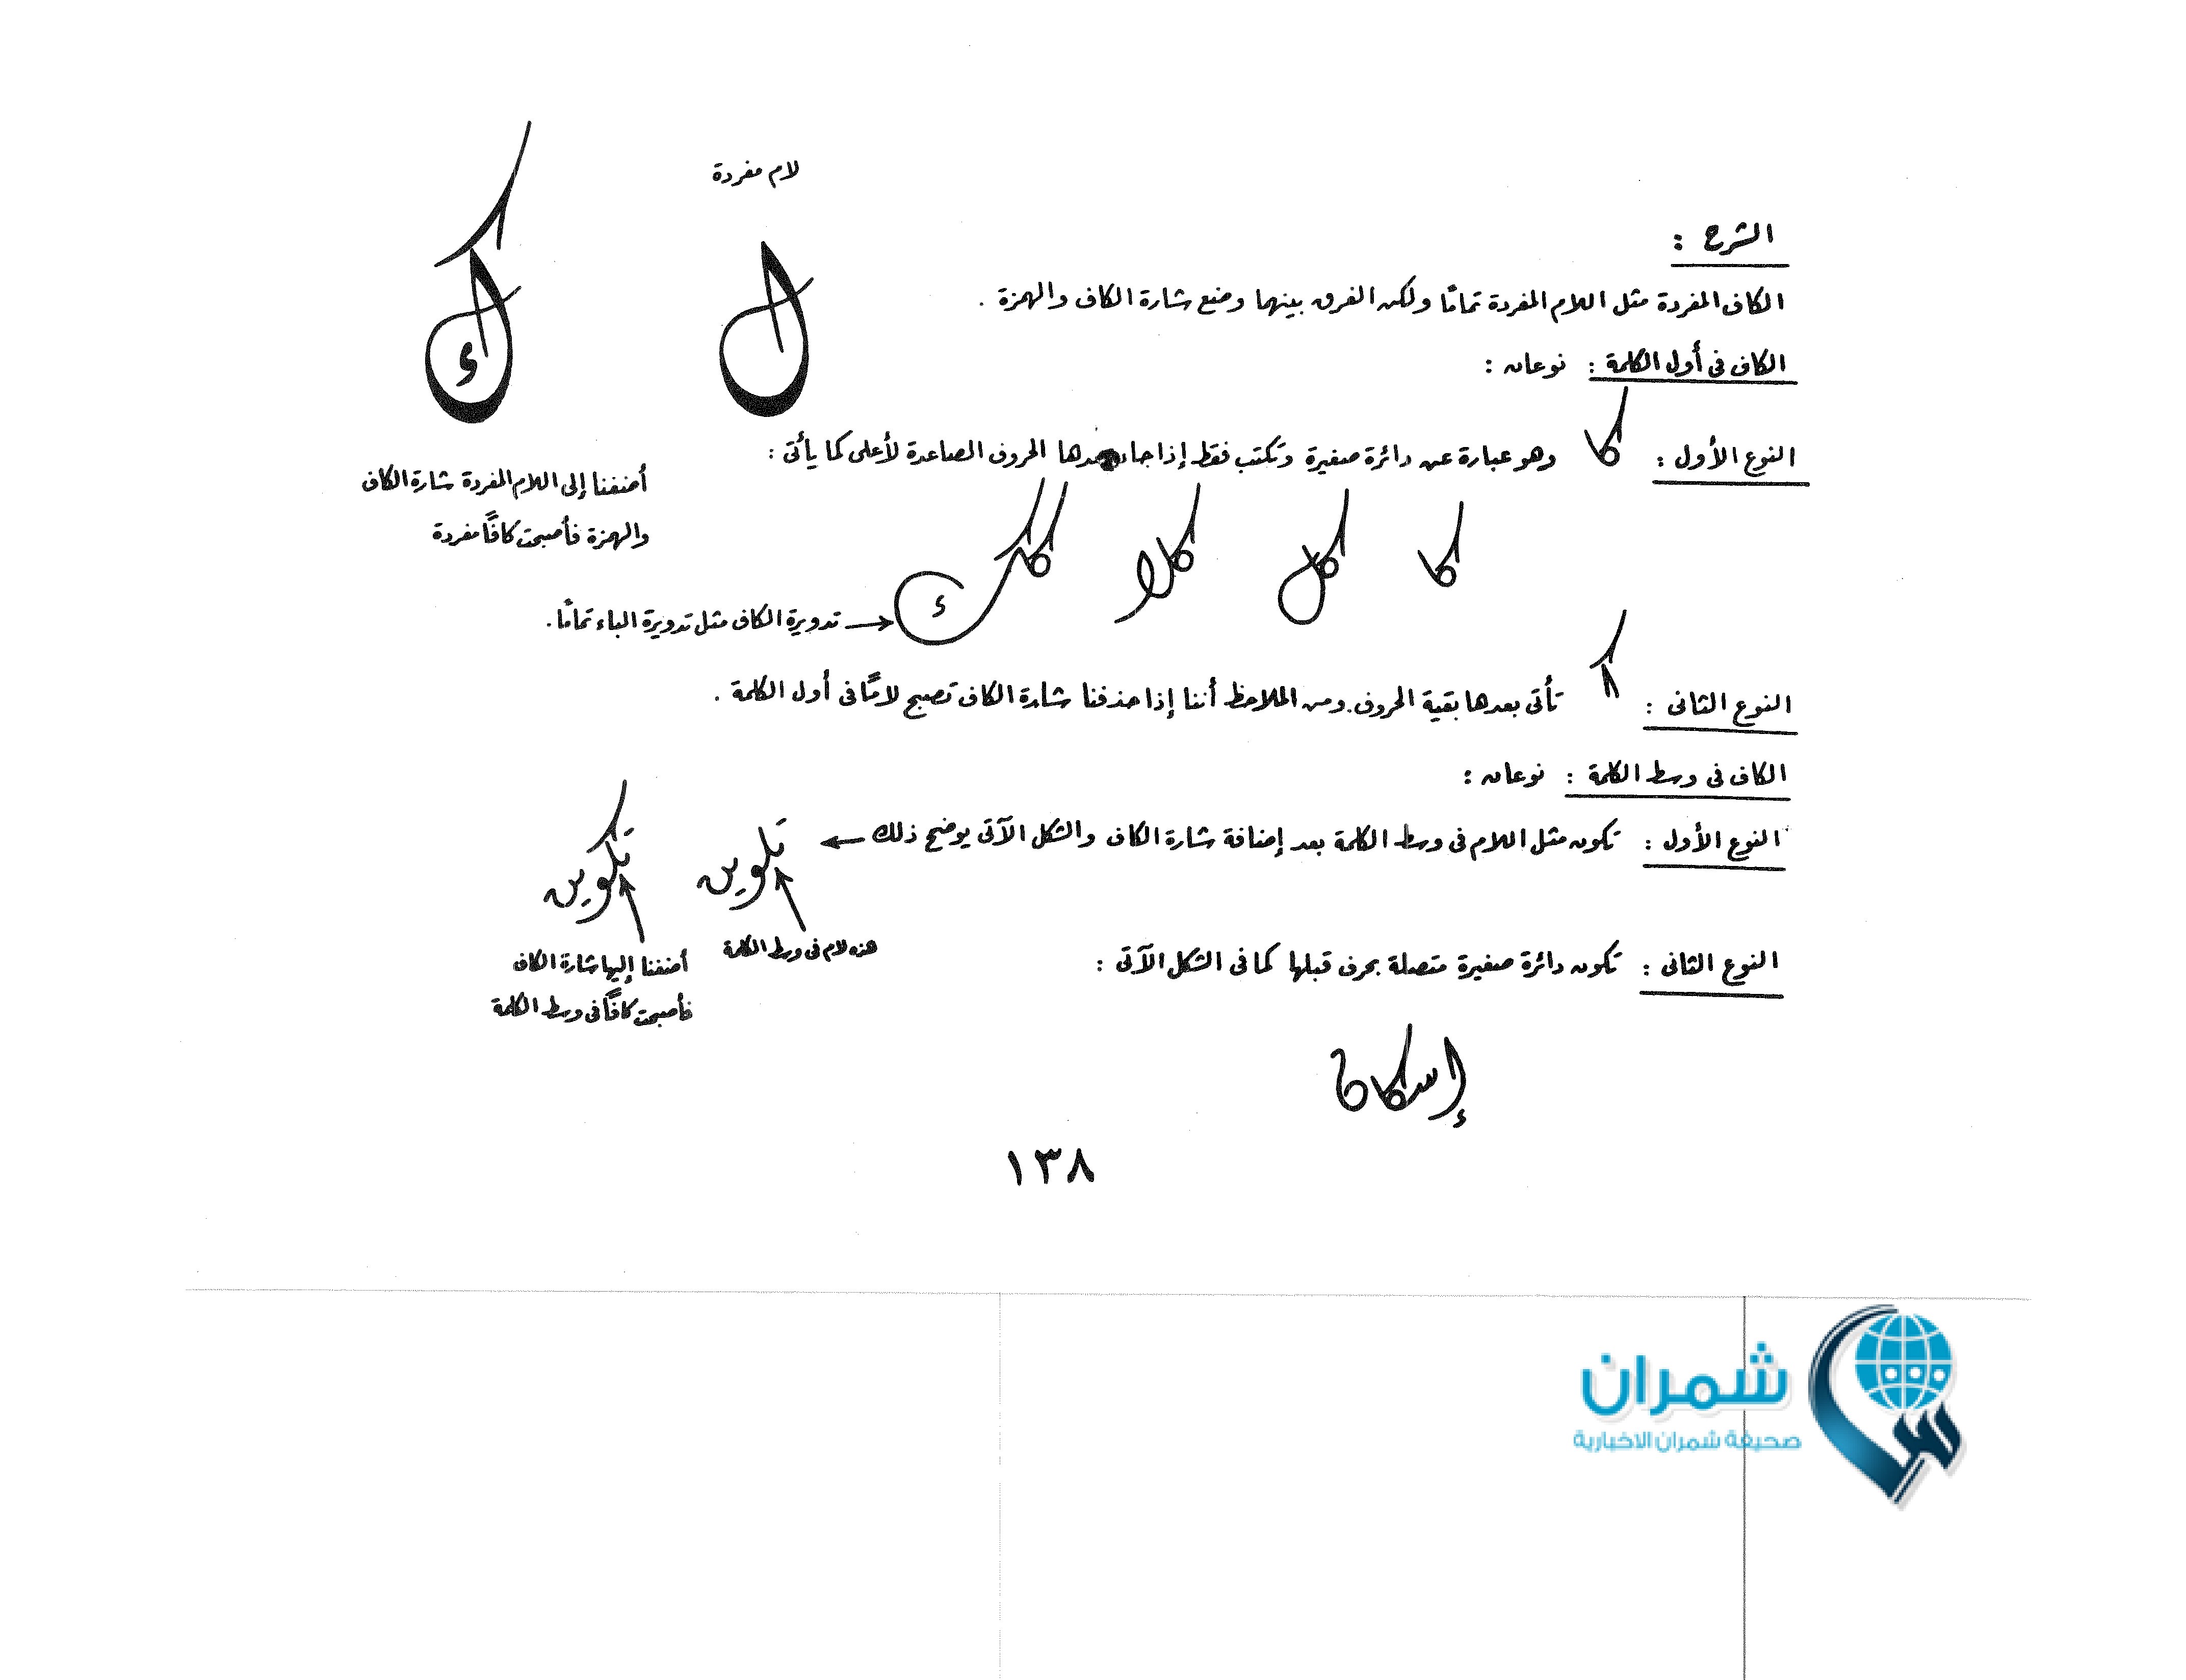 لام مفردة
الشرح :
الكاف المفردة مثل اللام المفردة تمامًا ولكن الفرق بينهما وضع شارة الكاف والهمزة .
الكاف فى أول الكلمة : نوعان :
النوع الأول : كا وهو عبارة عن دائرة صغيرة وتكتب فقط إذا جاء بعدها الحروف الصاعدة لأعلى كما يأتى :
أضفنا إلى اللام المفردة شارة الكاف
والهمزة فأصبحت كافًا مفردة
كا كل كلا ككك
تدويرة الكاف مثل تدويرة الباء تمامًا .
النوع الثانى : تأتى بعدها بقية الحروف . ومن الملاحظ أننا إذا حذفنا شارة الكاف تصبح لامًا فى أول الكلمة .
الكاف فى وسط الكلمة : نوعان :
النوع الأول : تكون مثل اللام فى وسط الكلمة بعد إضافة شارة الكاف والشكل الآتى يوضح ذلك
تلوين تكوين
هذه لام فى وسط الكلمة
أضفنا إليها شارة الكاف
فأصبحت كافًا فى وسط الكلمة
النوع الثانى : تكون دائرة صغيرة متصلة بحرف قبلها كما فى الشكل الآتى :
إسكان
١٣٨
شمران
صحيفة شمران الاخبارية